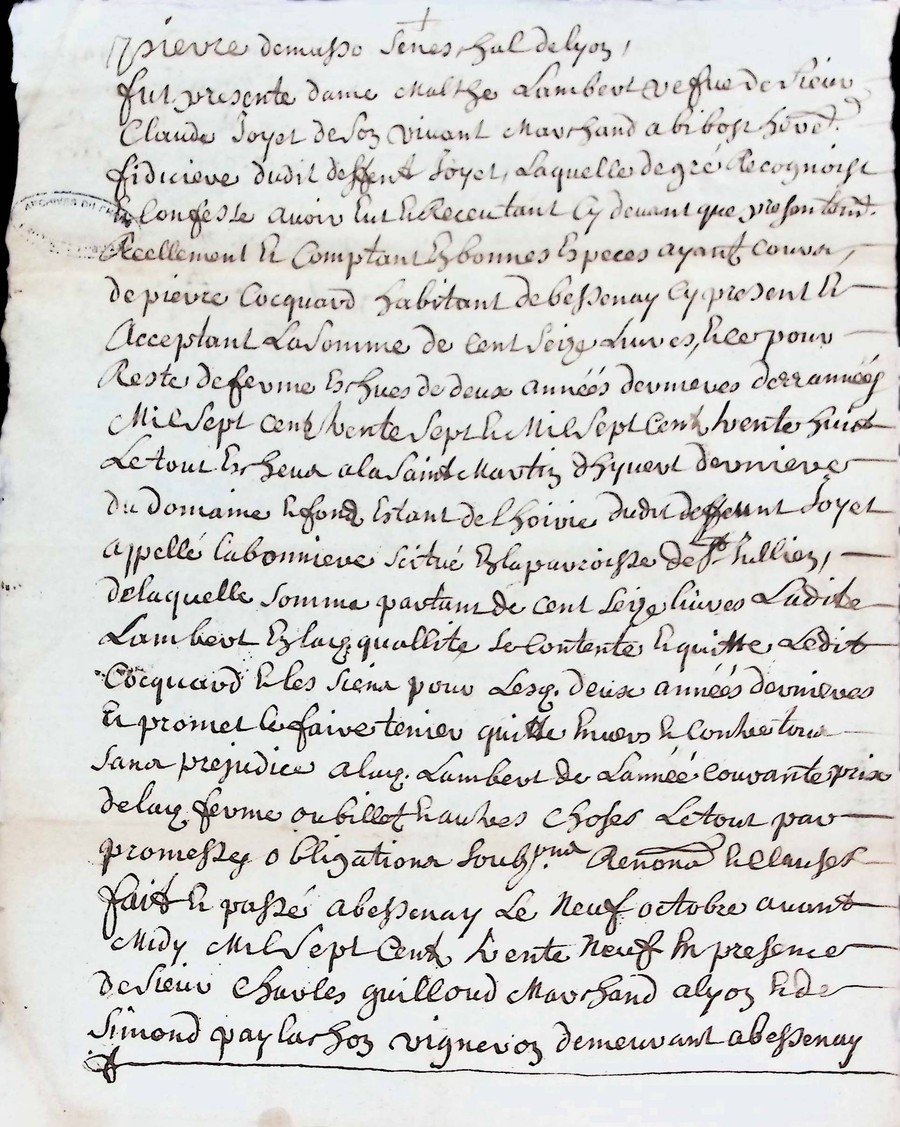 pierre demasso Seneschal delyon,
fut presente dame Malthe Lambert vefue de Sieur
Claude Joyet deson vivant Marchand a bibost herét.
fiduciere dudit deffent Joyet, Laquelle degré Recognoist
Et Confesse avoir Eut et Receu tant Cy devant que presentemt.
Reellement et Comptant En bonnes Especes ayant cours,
de pierre Cocquard habitant debessenay Cy present Et
Acceptant LaSomme de cent Seize Livres, Et ce pour
Reste deferme Escheues de deux années dernieres des années
Mil Sept Cent trente Sept et Mil Sept Cent trente huict
Le tout Escheux a la Saint Martin dhyvert derniere
du domaine et fond Estant de Lhoirie dudit deffeunt Joyet
appellé labonniere scitué En la parroisse de St. Jullien,
delaquelle somme partant de cent seize livres Ladite
Lambert En lad. quallite se Contente et quitte Ledit
Cocquard et les siens pour Lesd. deux années dernieres
Et promet le faire tenier quitte Envers et Contre tous
Sans prejudice a lad. Lambert de Lannéé courante prix
delad. ferme ou billet et autres choses Le tout par
promesses obligations Soubs.ons Renon.ons et clauses
fait et passé abessenay Le Neuf octobre avant
Midy Mil Sept Cent trente Neuf En presence
de Sieur Charles guilloud Marchand alyon et de
Simond paylachon vigneron demeurant abessenay